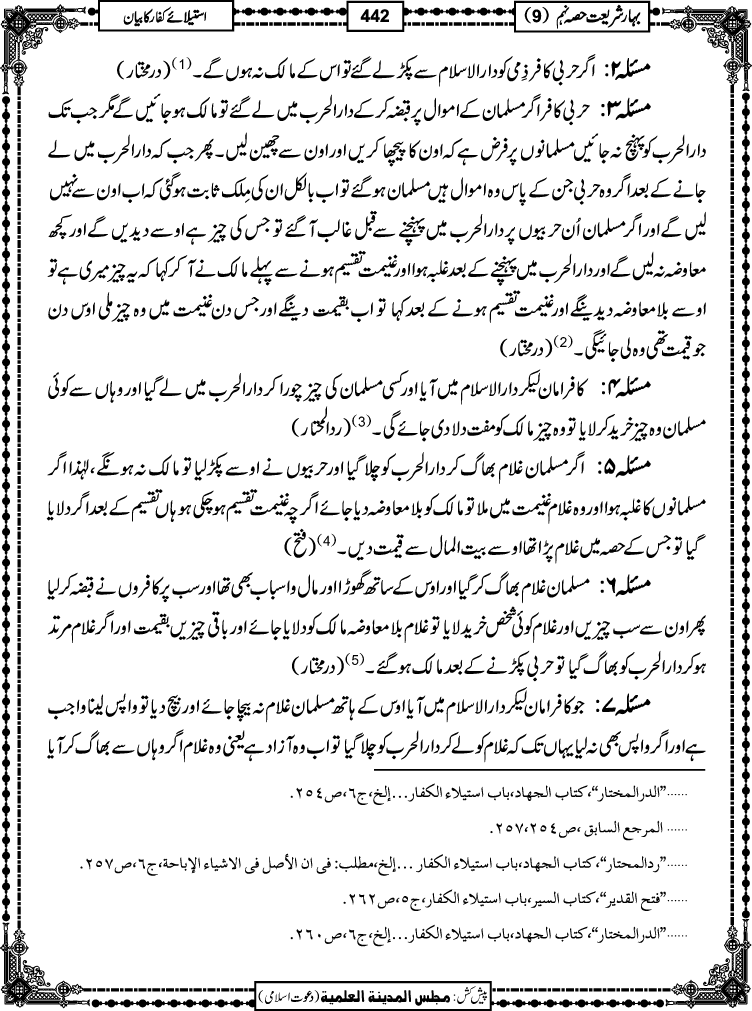 بہار شریعت حصہ نہم (9)
442
استیلائے کفار کا بیان
مسئلہ ۲: اگر حربی کافر ذمی کو دارالاسلام سے پکڑ لے گئے تو اس کے مالک نہ ہوں گے۔(1) (درمختار)
مسئلہ ۳: حربی کافر اگر مسلمان کے اموال پر قبضہ کرکے دارالحرب میں لے گئے تو مالک ہوجائیں گے مگر جب تک
دارالحرب کو پہنچ نہ جائیں مسلمانوں پر فرض ہے کہ اون کا پیچھا کریں اور اون سے چھین لیں۔ پھر جب کہ دارالحرب میں لے
جانے کے بعد اگر وہ حربی جن کے پاس وہ اموال ہیں مسلمان ہوگئے تو اب بالکل ان کی مِلک ثابت ہوگئی کہ اب اون سے نہیں
لیں گے اور اگر مسلمان اُن حربیوں پر دارالحرب میں پہنچنے سے قبل غالب آگئے تو جس کی چیز ہے اوسے دیدیں گے اور کچھ
معاوضہ نہ لیں گے اور دارالحرب میں پہنچنے کے بعد غلبہ ہوا اور غنیمت تقسیم ہونے سے پہلے مالک نے آکر کہا کہ یہ چیز میری ہے تو
اوسے بلا معاوضہ دیدینگے اور غنیمت تقسیم ہونے کے بعد کہا تو اب بقیمت دینگے اور جس دن غنیمت میں وہ چیز ملی اوس دن
جو قیمت تھی وہ لی جائیگی۔(2) (درمختار)
مسئلہ ۴: کافر امان لیکر دارالاسلام میں آیا اور کسی مسلمان کی چیز چورا کر دارالحرب میں لے گیا اور وہاں سے کوئی
مسلمان وہ چیز خرید کر لایا تو وہ چیز مالک کو مفت دلا دی جائے گی۔(3) (ردالمحتار)
مسئلہ ۵: اگر مسلمان غلام بھاگ کر دارالحرب کو چلا گیا اور حربیوں نے اوسے پکڑ لیا تو مالک نہ ہونگے، لہٰذا اگر
مسلمانوں کا غلبہ ہوا اور وہ غلام غنیمت میں ملا تو مالک کو بلا معاوضہ دیا جائے اگرچہ غنیمت تقسیم ہوچکی ہو ہاں تقسیم کے بعد اگر دلایا
گیا تو جس کے حصہ میں غلام پڑا تھا اوسے بیت المال سے قیمت دیں۔(4) (فتح)
مسئلہ ۶: مسلمان غلام بھاگ کر گیا اور اوس کے ساتھ گھوڑا اور مال و اسباب بھی تھا اور سب پر کافروں نے قبضہ کرلیا
پھر اون سے سب چیزیں اور غلام کوئی شخص خرید لایا تو غلام بلا معاوضہ مالک کو دلایا جائے اور باقی چیزیں بقیمت اور اگر غلام مرتد
ہوکر دارالحرب کو بھاگ گیا تو حربی پکڑنے کے بعد مالک ہوگئے۔(5) (درمختار)
مسئلہ ۷: جو کافر امان لیکر دارالاسلام میں آیا اوس کے ہاتھ مسلمان غلام نہ بیچا جائے اور بیچ دیا تو واپس لینا واجب
ہے اور اگر واپس بھی نہ لیا یہاں تک کہ غلام کو لے کر دارالحرب کو چلا گیا تو اب وہ آزاد ہے یعنی وہ غلام اگر وہاں سے بھاگ کر آیا
......”الدرالمختار“،کتاب الجهاد،باب استیلاء الکفار...إلخ،ج٦،ص٢٥٤.
...... المرجع السابق ،ص٢٥٤،٢٥٧.
......”ردالمحتار“،کتاب الجهاد،باب استیلاء الکفار ...إلخ،مطلب: فی ان الأصل فی الاشیاء الإباحة،ج٦،ص٢٥٧.
......”فتح القدیر“،کتاب السیر،باب استیلاء الکفار،ج٥،ص٢٦٢.
......”الدرالمختار“،کتاب الجهاد،باب استیلاء الکفار...إلخ،ج٦،ص٢٦٠.
پیش کش: مجلس المدینة العلمیة (دعوت اسلامی)